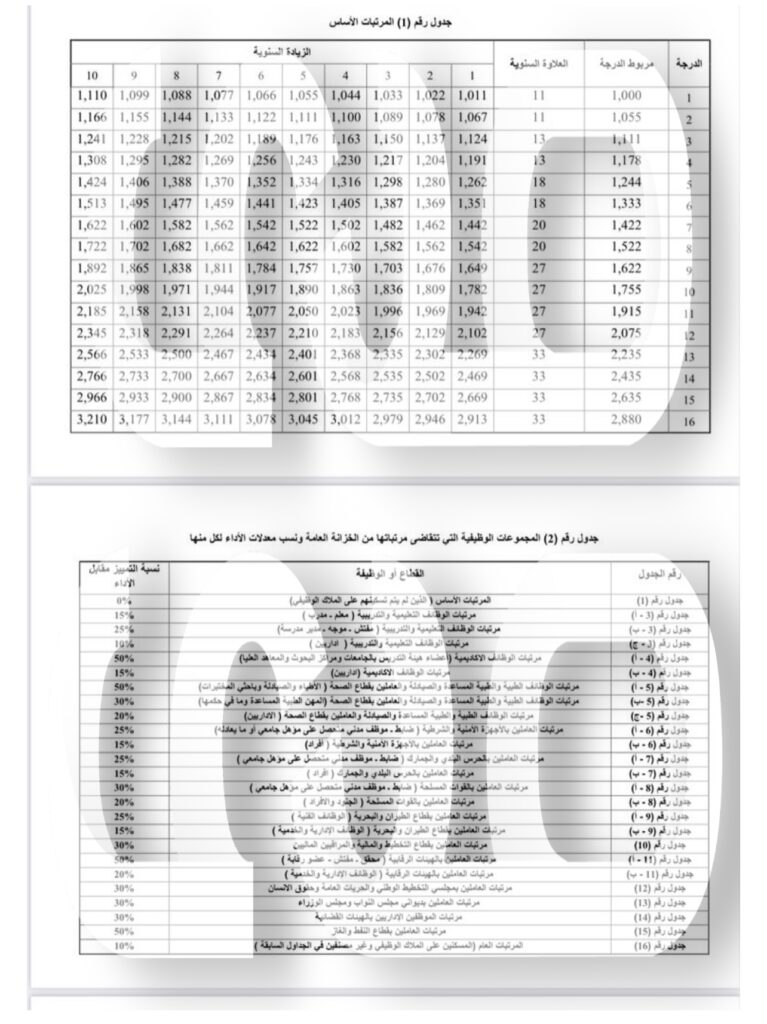 جدول رقم (1) المرتبات الأساس
الدرجة مربوط الدرجة العلاوة السنوية الزيادة السنوية
1 2 3 4 5 6 7 8 9 10
1 1,000 11 1,011 1,022 1,033 1,044 1,055 1,066 1,077 1,088 1,099 1,110
2 1,055 11 1,067 1,078 1,089 1,100 1,111 1,122 1,133 1,144 1,155 1,166
3 1,111 13 1,124 1,137 1,150 1,163 1,176 1,189 1,202 1,215 1,228 1,241
4 1,178 13 1,191 1,204 1,217 1,230 1,243 1,256 1,269 1,282 1,295 1,308
5 1,244 18 1,262 1,280 1,298 1,316 1,334 1,352 1,370 1,388 1,406 1,424
6 1,333 18 1,351 1,369 1,387 1,405 1,423 1,441 1,459 1,477 1,495 1,513
7 1,422 20 1,442 1,462 1,482 1,502 1,522 1,542 1,562 1,582 1,602 1,622
8 1,522 20 1,542 1,562 1,582 1,602 1,622 1,642 1,662 1,682 1,702 1,722
9 1,622 27 1,649 1,676 1,703 1,730 1,757 1,784 1,811 1,838 1,865 1,892
10 1,755 27 1,782 1,809 1,836 1,863 1,890 1,917 1,944 1,971 1,998 2,025
11 1,915 27 1,942 1,969 1,996 2,023 2,050 2,077 2,104 2,131 2,158 2,185
12 2,075 27 2,102 2,129 2,156 2,183 2,210 2,237 2,264 2,291 2,318 2,345
13 2,235 33 2,269 2,302 2,335 2,368 2,401 2,434 2,467 2,500 2,533 2,566
14 2,435 33 2,469 2,502 2,535 2,568 2,601 2,634 2,667 2,700 2,733 2,766
15 2,635 33 2,669 2,702 2,735 2,768 2,801 2,834 2,867 2,900 2,933 2,966
16 2,880 33 2,913 2,946 2,979 3,012 3,045 3,078 3,111 3,144 3,177 3,210
جدول رقم (2) المجموعات الوظيفية التي تتقاضى مرتباتها من الخزانة العامة ونسب معدلات الأداء لكل منها
رقم الجدول القطاع أو الوظيفة نسبة التمييز مقابل الأداء
جدول رقم (1) المرتبات الأساس ( الذين لم يتم تسكينهم على الملاك الوظيفي) 0%
جدول رقم (3 - أ) مرتبات الوظائف التعليمية والتدريبية ( معلم - مدرب ) 15%
جدول رقم (3 - ب) مرتبات الوظائف التعليمية والتدريبية ( مفتش - موجه - مدير مدرسة) 25%
جدول رقم مرتبات الوظائف التعليمية والتدريبية ( اداريين ) 10%
جدول رقم (4 - أ) مرتبات الوظائف الاكاديمية (أعضاء هيئة التدريس بالجامعات ومراكز البحوث والمعاهد العليا) 50%
جدول رقم (4 - ب) مرتبات الوظائف الاكاديمية (اداريين) 15%
جدول رقم (5 - أ) مرتبات الوظائف الطبية والطبية المساعدة والصيادلة والعاملين بقطاع الصحة ( الأطباء والصيادلة وباحثي المختبرات) 50%
جدول رقم (5 -ب) مرتبات الوظائف الطبية والطبية المساعدة والصيادلة والعاملين بقطاع الصحة (المهن الطبية المساعدة وما في حكمها) 30%
جدول رقم (5 -ج) مرتبات الوظائف الطبية والطبية المساعدة والصيادلة والعاملين بقطاع الصحة ( الاداريين) 20%
جدول رقم (6 - أ) مرتبات العاملين بالأجهزة الأمنية والشرطية ( ضابط - موظف مدني متحصل على مؤهل جامعي أو ما يعادله) 25%
جدول رقم (6 - ب) مرتبات العاملين بالأجهزة الأمنية والشرطية ( أفراد) 15%
جدول رقم (7 - أ) مرتبات العاملين بالحرس البلدي والجمارك ( ضابط - موظف مدني متحصل على مؤهل جامعي ) 25%
جدول رقم (7 - ب) مرتبات العاملين بالحرس البلدي والجمارك ( افراد ) 15%
جدول رقم (8 - أ) مرتبات العاملين بالقوات المسلحة ( ضابط - موظف مدني متحصل على مؤهل جامعي ) 30%
جدول رقم (8 - ب) مرتبات العاملين بالقوات المسلحة ( الجنود والافراد ) 20%
جدول رقم (9 - أ) مرتبات العاملين بقطاع الطيران والبحرية ( الوظائف الفنية ) 25%
جدول رقم (9 - ب) مرتبات العاملين بقطاع الطيران والبحرية ( الوظائف الإدارية والخدمية ) 15%
جدول رقم (10) مرتبات العاملين بقطاع التخطيط والمالية والمراقبين الماليين 30%
جدول رقم (11 - أ) مرتبات العاملين بالهيئات الرقابية ( محقق - مفتش - عضو رقابة ) 50%
جدول رقم (11 - ب) مرتبات العاملين بالهيئات الرقابية ( الوظائف الإدارية والخدمية ) 20%
جدول رقم (12) مرتبات العاملين بمجلسي التخطيط الوطني والحريات العامة وحقوق الانسان 30%
جدول رقم (13) مرتبات العاملين بديواني مجلس النواب ومجلس الوزراء 30%
جدول رقم (14) مرتبات الموظفين الإداريين بالهيئات القضائية 30%
جدول رقم (15) مرتبات العاملين بقطاع النفط والغاز 50%
جدول رقم (16) المرتبات العام (المسكنين على الملاك الوظيفي وغير مصنفين في الجداول السابقة ) 10%